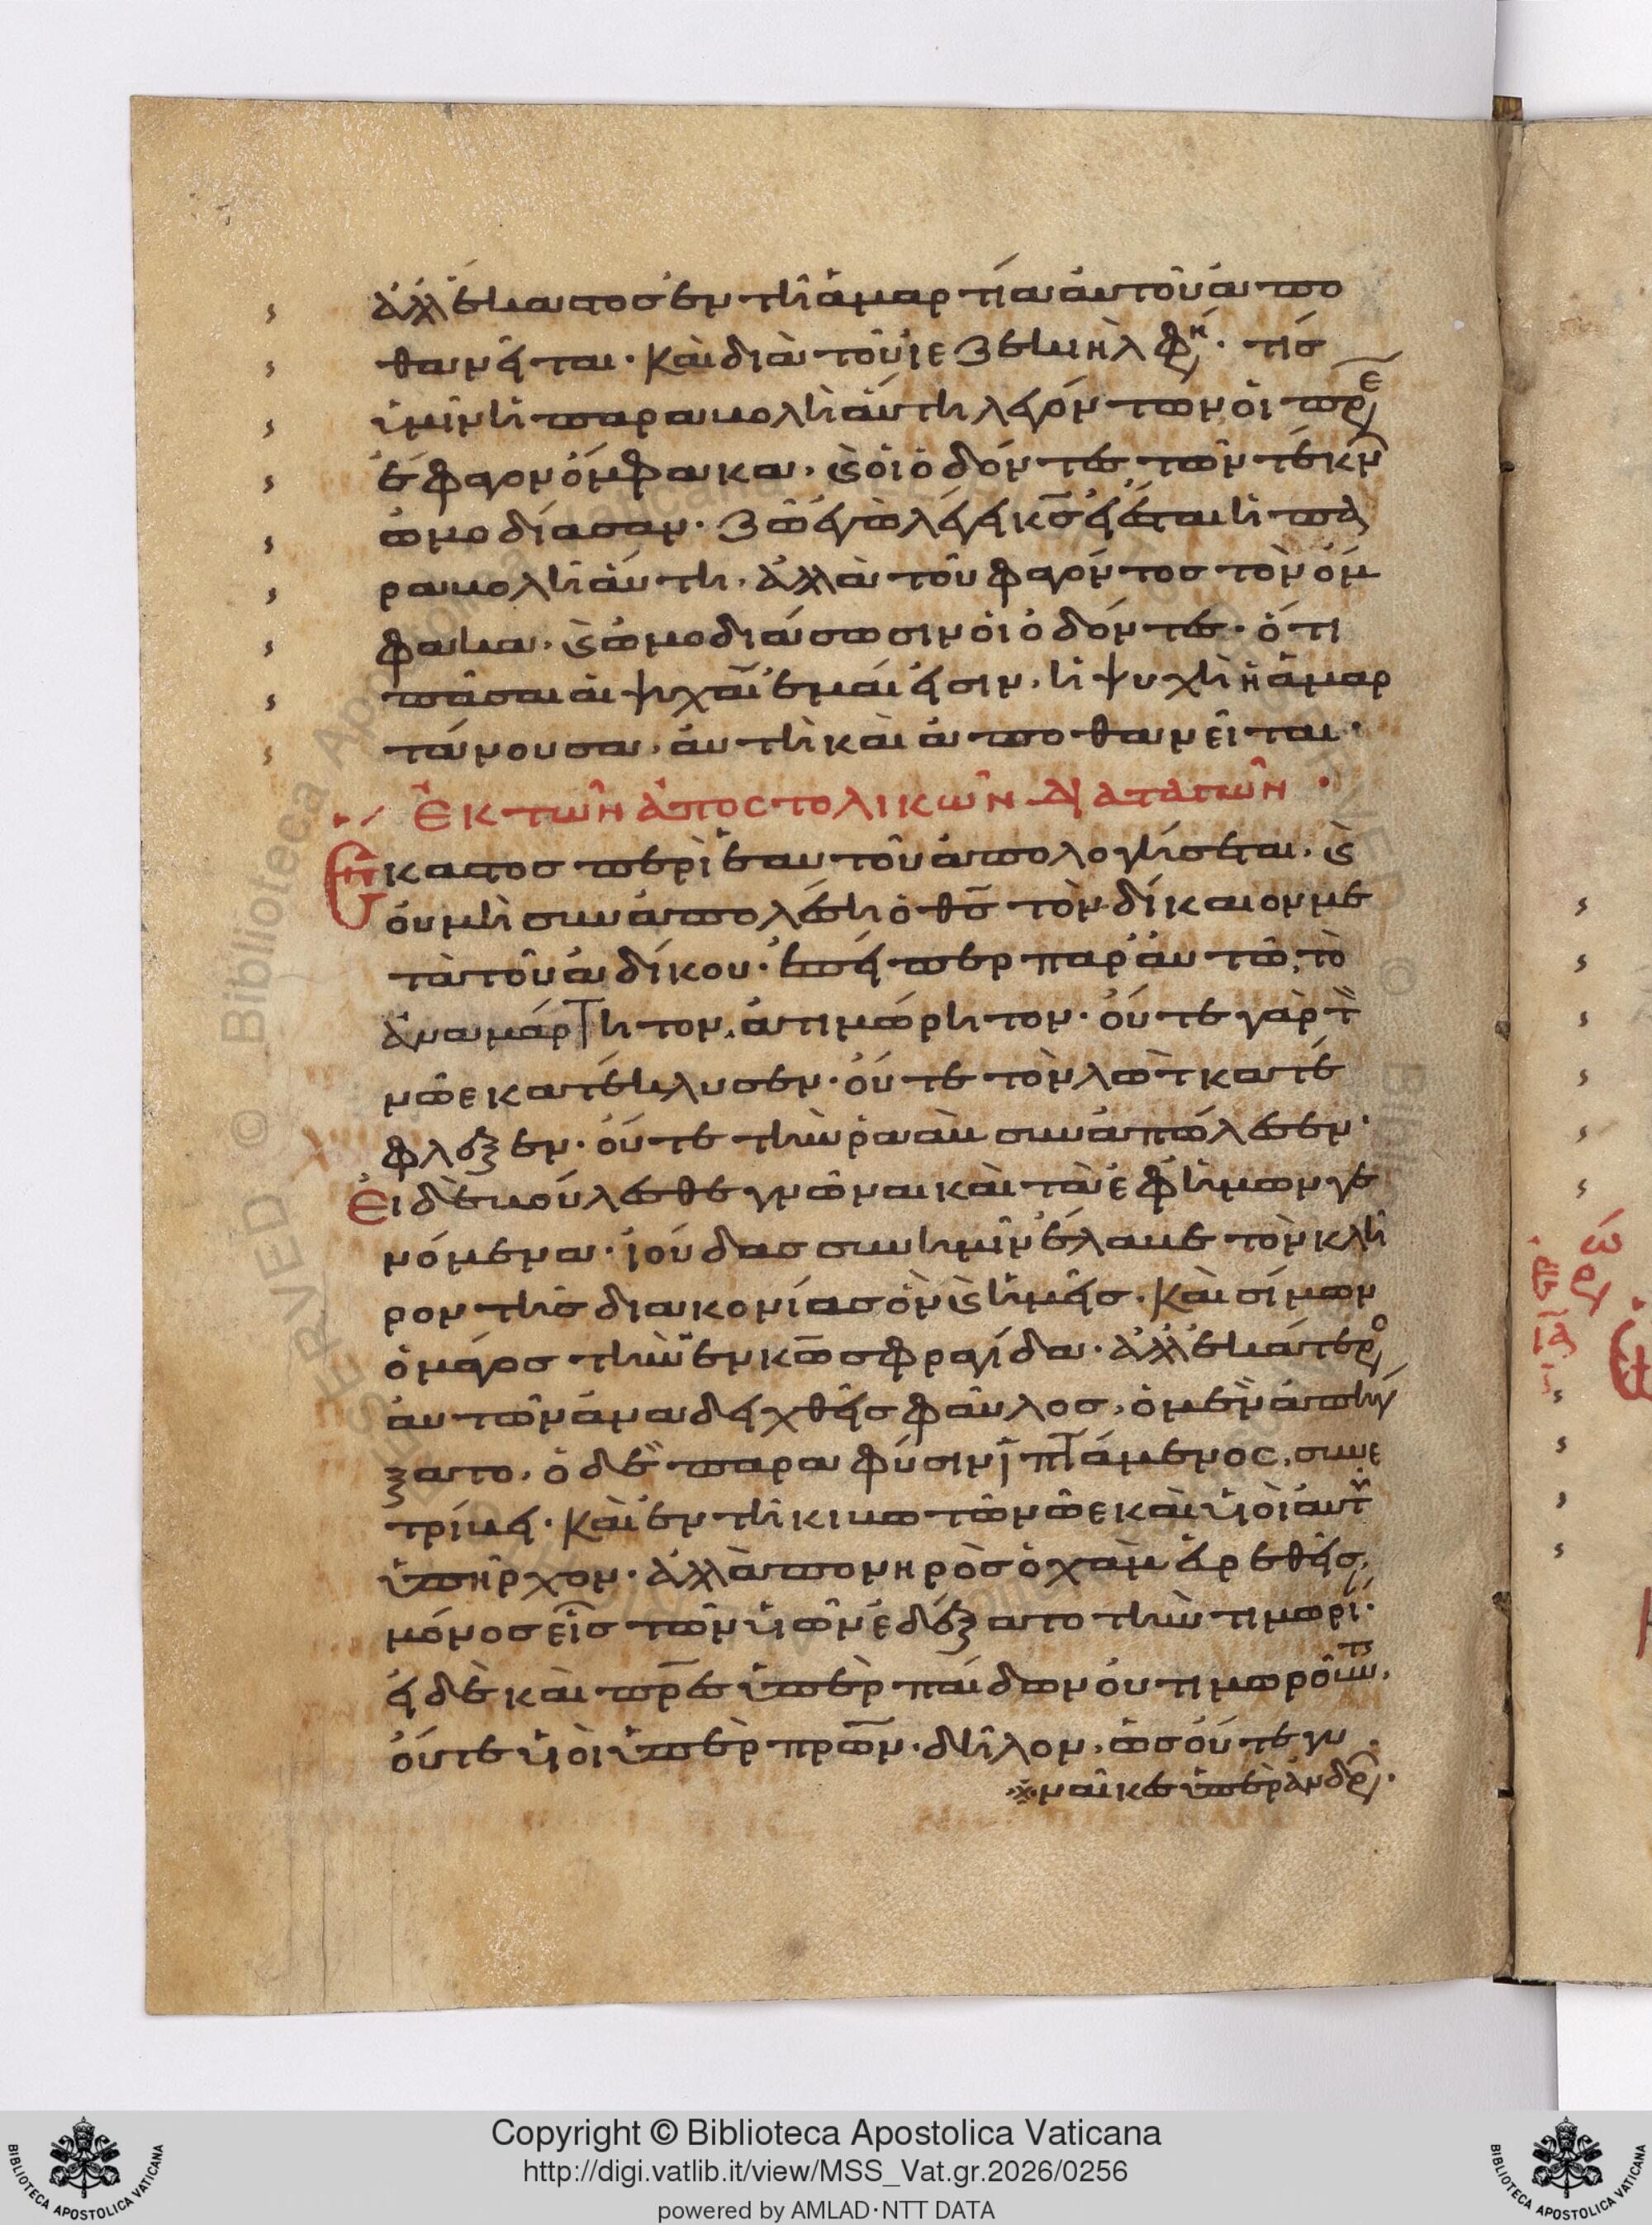 ἀλλ' ἕκαστος ἐν τῆ ἁμαρτία αὐτοῦ ἀπο
θανεῖται· καὶ διὰ τοῦ ἰεζεκιὴλ φη· τίς
ὑμῖν ἡ παραβολὴ αὕτη λεγόντων, οἱ πρε
ἔφαγον ὄμφακα, καὶ οἱ ὀδόντες τῶν τέκν
ὠμοδίασαν· ζῶ ἐγὼ λέγει κς εἰ ἔσται ἡ πα
ραβολὴ αὕτη, ἀλλὰ τοῦ φαγόντος τὸν ὄμ
φακα, καὶ ὠμοδιάσωσιν οἱ ὀδόντες· ὅτι
πᾶσαι αἱ ψυχαῖ ἐμαί εἰσιν, ἡ ψυχὴ ἡ ἁμαρ
τάνουσα, αὐτὴ καὶ ἀποθανεῖται·
Ἐκ τῶν ἀποστολικῶν διαταγῶν·
Ἕκαστος περὶ ἑαυτοῦ ἀπολογήσεται, καὶ
οὐ μὴ συναπολέση ὁ θς τὸν δίκαιον με
τὰ τοῦ ἀδίκου· ἐπείπερ παρ' αὐτῶ, τὸ
ἀναμάρτητον, ἀτιμώρητον· οὔτε γὰρ τ
νῶε κατέκλυσεν· οὔτε τὸν λὼτ κατέ
φλεξεν· οὔτε τὴν ῥαὰβ συναπώλεσεν·
Εἰ δὲ βούλεσθε γνῶναι καὶ τὰ ἐφ' ἡμῶν γε
νόμενα· ἰούδας σὺν ἡμῖν ἔλαβε τὸν κλῆ
ρον τῆς διακονίας ὃν καὶ ἡμεῖς· καὶ σίμων
ὁ μάγος τὴν ἐν κω σφραγίδα· ἀλλ' ἑκάτερο
αὐτῶν ἀναδειχθεὶς φαῦλος, ὁ μὲν ἀπήγ
ξατο, ὁ δὲ παρα φύσιν ἱπτάμενος, συνε
τρίβη· καὶ ἐν τῆ κιβωτῶ νῶε καὶ υἱοὶ αὐτ
ὑπῆρχον· ἀλλὰ πονηρὸς ὁ χὰμ εὑρεθεὶς,
μόνος εἷς τῶν υἱῶν ἐδέξατο τὴν τιμωρί·
εἰ δὲ καὶ πρες ὑπὲρ παίδων οὐ τιμωροῦντ,
οὔτε υἱοὶ ὑπὲρ πρων· δῆλον, ὡς οὔτε γυ
ναῖκες ὑπὲρ ἀνδρ·
Copyright © Biblioteca Apostolica Vaticana
http://digi.vatlib.it/view/MSS_Vat.gr.2026/0256
powered by AMLAD·NTT DATA